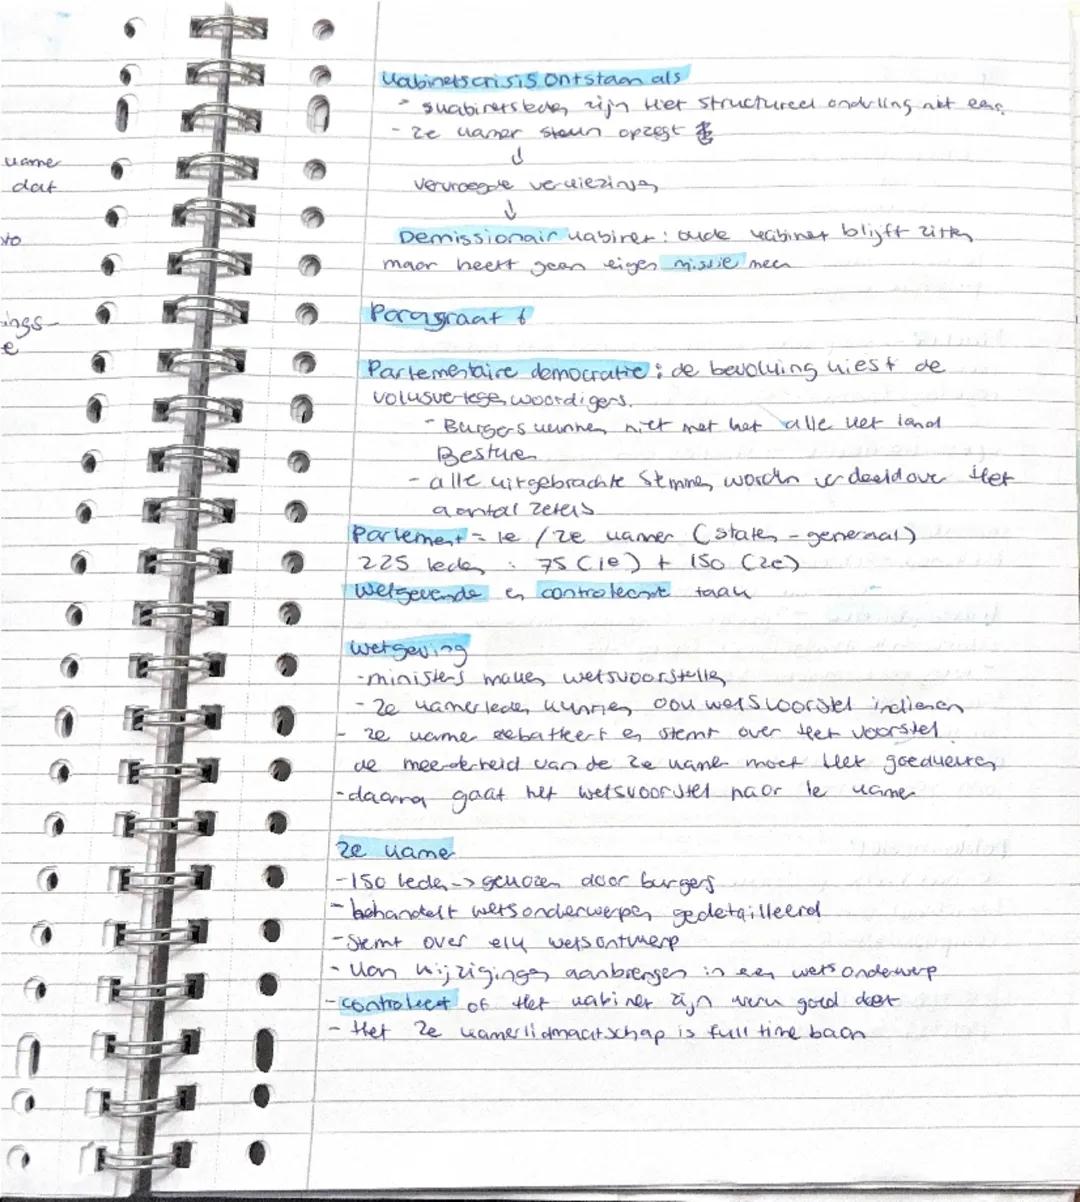 kame
dat
ings-
e
Kabinetscrisis ontstaan als
- kabinetsleden zijn het structureel onderling niet eens
- 2e kamer steun opzegt
↓
vervroegde verkiezingen
↓
Demissionair kabinet: oude kabinet blijft zitten
maar heeft geen eigen missie meer
Paragraaf 6
Parlementaire democratie: de bevolking kiest de
volksvertegenwoordigers.
- Burgers kunnen niet met het alle het land
Besturen
- alle uitgebrachte stemmen worden verdeeld over het
aantal zetels
Parlement = 1e / 2e kamer (staten-generaal)
225 leden : 75 (1e) + 150 (2e)
Wetgevende en controlerende taak
Wetgeving
- ministers maken wetsvoorstellen
- 2e kamerleden kunnen ook wetsvoorstel indienen
- 2e kamer debatteert en stemt over het voorstel
de meerderheid van de 2e kamer moet het goedkeuren
- daarna gaat het wetsvoorstel naar 1e kamer
2e kamer
- 150 leden -> gekozen door burgers
- behandelt wetsonderwerpen gedetailleerd
- stemt over elk wetsontwerp
- kan wijzigingen aanbrengen in een wetsonderwerp
- controleert of het kabinet zijn werk goed doet
- Het 2e kamerlidmaatschap is full time baan